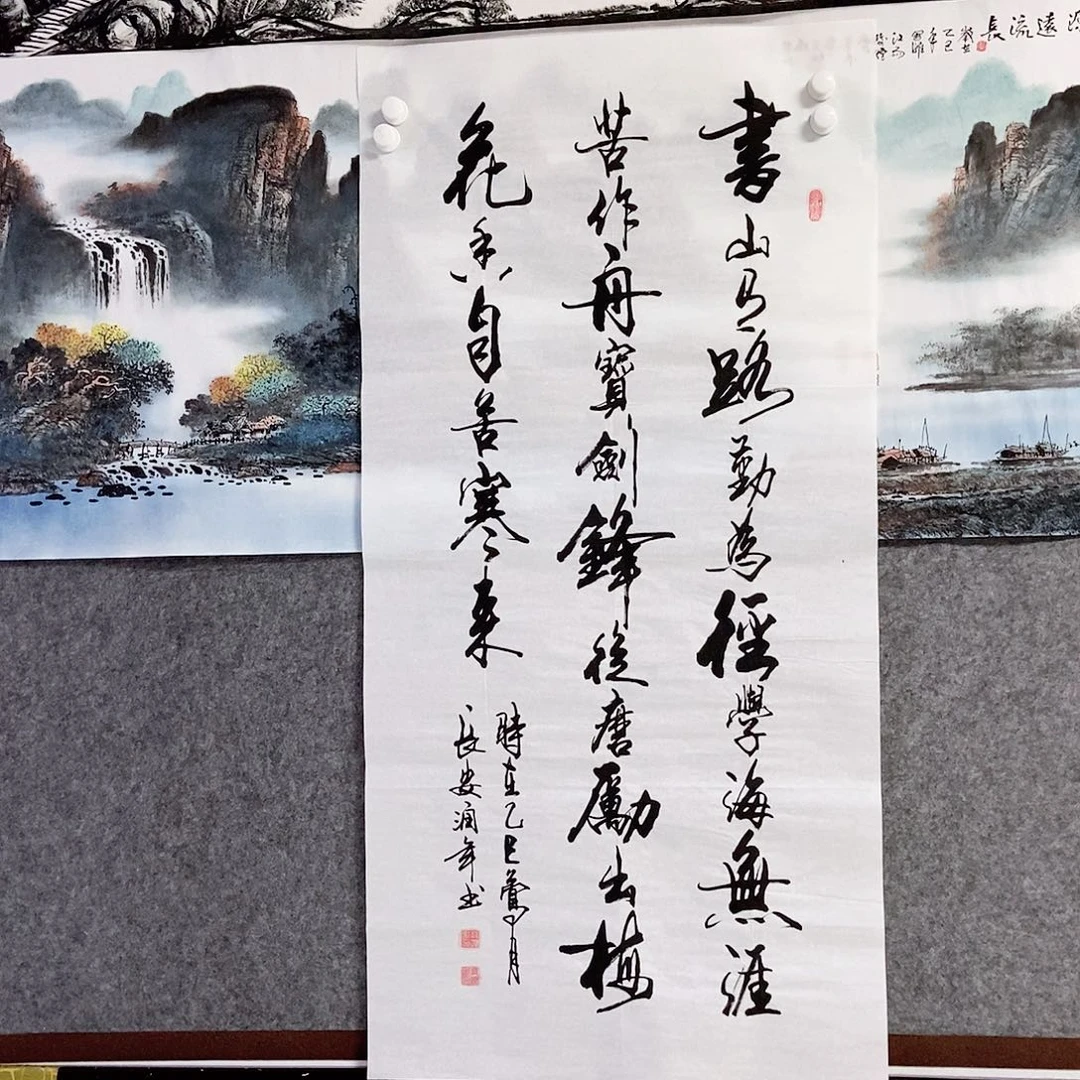 書山有路勤為徑學海無涯
苦作舟寶劍鋒從磨勵出梅
花香自苦寒来
時在乙巳月
長安潤年书
遠流長
乙巳
年